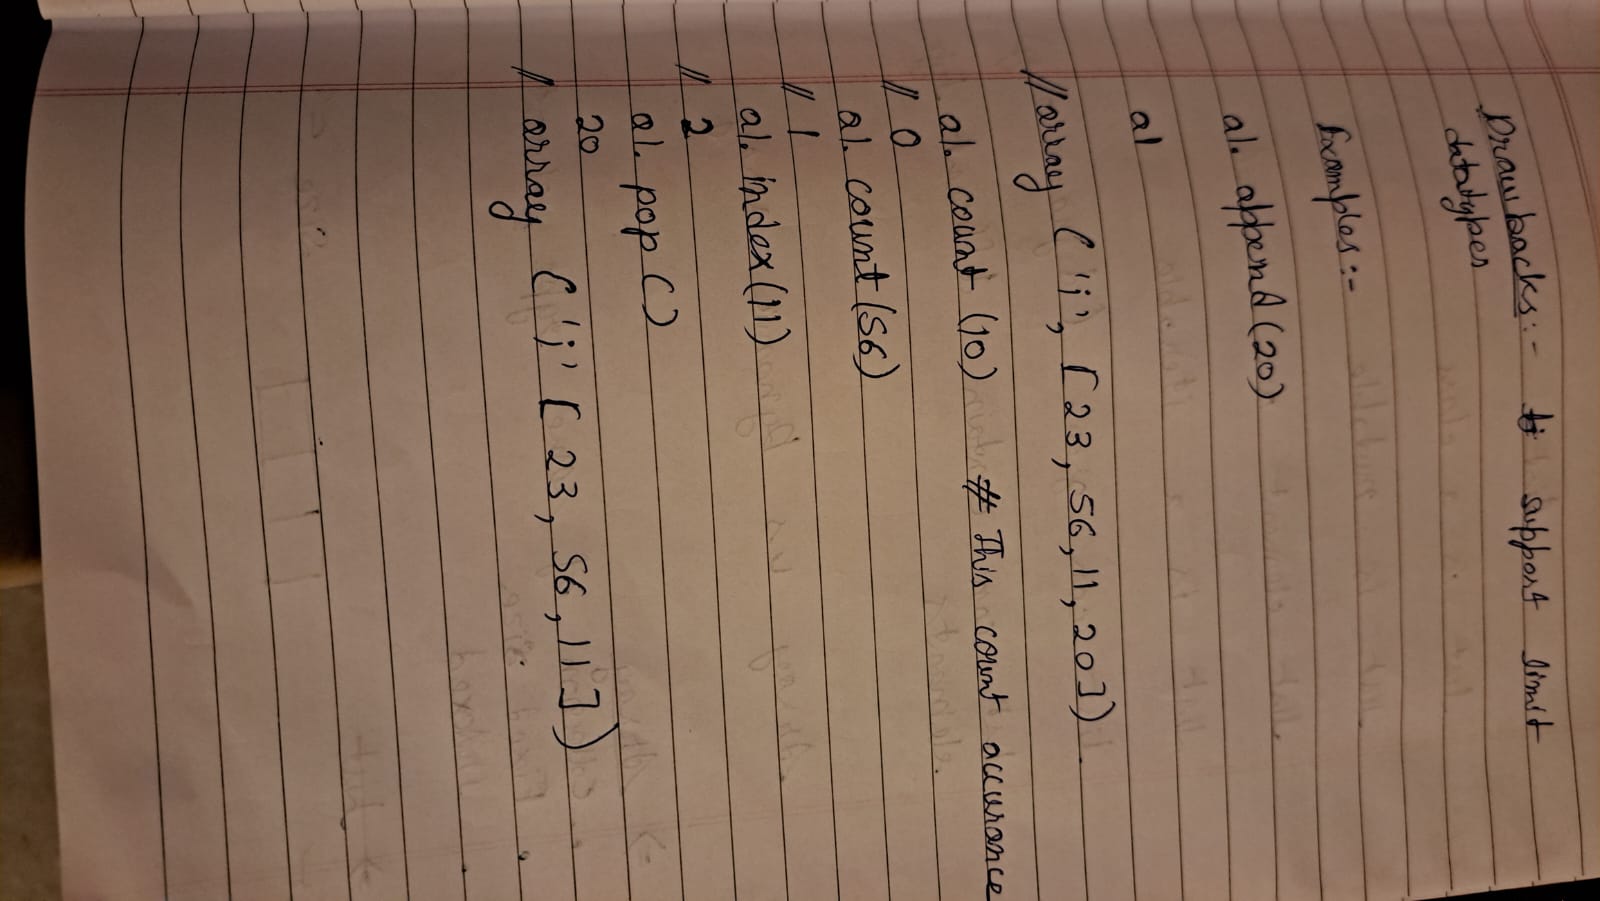 Drawbacks:- support limit
datatypes
Examples:-
al. append(20)
al
//array ('i', [23, 56, 11, 20])
al. count (10) # This count accurance
// 0
al. count(56)
// 1
al. index(11)
// 2
al. pop()
20
// array ('i' [23, 56, 11])